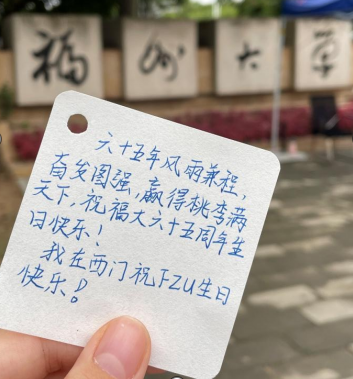 福州大学
六十五年风雨兼程,
奋发图强,赢得桃李满
天下,祝福大六十五周年生
日快乐!
我在西门祝FZU生日
快乐!